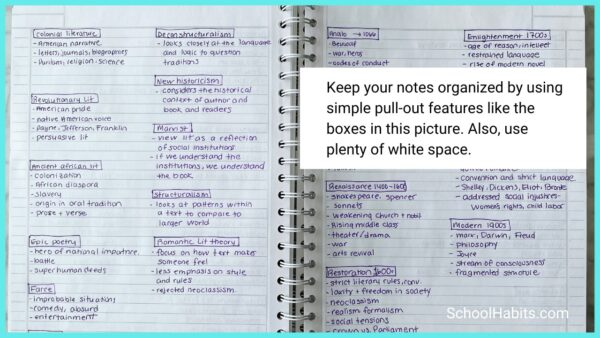 Colonial literature
- American narrative
- letters, journals, biographies
- Puritans, religion, science
Revolutionary Lit
- American pride
- native American voice
- Payne, Jefferson, Franklin
- persuasive lit
Ancient african lit
- colonization
- African diaspora
- slavery
- origin in oral tradition
- prose + verse
Epic poetry
- hero of national importnce
- battle
- super human deeds
Farce
- improbable situations
- comedy, absurd
- entertainment
Deconstructuralism
- looks closely at the language
and logic to question
traditions
New historicism
- considers the historical
context of author and
book and readers
Marxist
- view lit as a reflection
of social institutions
- if we understand the
institutions, we understand
the book.
Structuralism
- looks at patterns within
a text to compare to
larger world
Romantic Lit theory
- focus on how text makes
someone feel
- less emphasis on style
and rules
- rejected neoclassism.
Anglo → 1066
- Beowulf
- war, heros
- codes of conduct
Renaissance 1400-1600
- shakespeare, spencer
- sonnets
- weakening church + nobil
- Rising middle class
- theater/drama
- war
- arts revival
Restoration 1600s
- strict literary rules, conv.
- laxity + freedom in society
- neoclassism
- realism formalism
- social tensions
- crown vs. Parliament
Enlightenment 1700s
- age of reason, intellect
- restrained language
- rise of modern novel
- Convention and strict language
- Shelley, Dickens, Eliot,
- addressed social injustices
women's rights, child labor
Modern 1900s
- marx, Darwin, Freud
- philosophy
- Joyce
- stream of consciousness
- fragmented
Keep your notes organized by using
simple pull-out features like the
boxes in this picture. Also, use
plenty of white space.
SchoolHabits.com